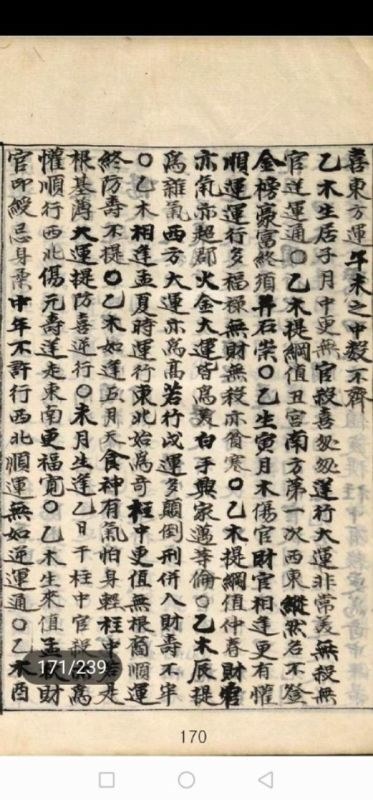 喜東方運午未之中數不齊
乙木生居子月中更無官殺喜匆匆逆行大運非常美無殺無
官送運通〇乙木提綱值丑宮南方第一次西東縱然名不登
金榜豪富終須算石崇〇乙生寅月木傷官財官相逢更有懽
順運運行多福祿無財無殺亦貧寒〇乙木提綱值仲春財官
亦氣亦超郡火金大運皆為美白手興家邁等倫〇乙木辰提
為雜氣西方大運亦為高若行戌運多顛倒刑併入財壽不牢
〇乙木相逢孟夏時運行東北始為奇柱中更值無根蒂順運
終防壽不提〇乙木如逢五月天食神有氣怕身輕柱中走
根基薄大運提防喜逆行〇未月生逢乙日干柱中官為
懽順行西北傷元壽逆走東南更福寬〇乙木生來值孟秋財
官印綬忌身柔中年不許行西北順運無如逆運通〇乙木酉
171/239
170